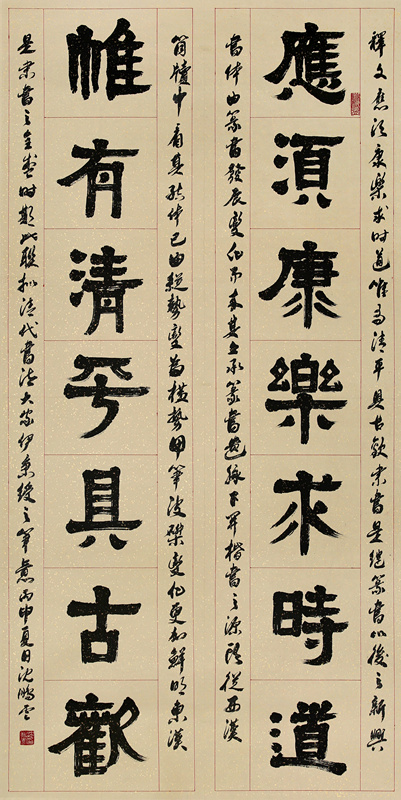 釋文應須康樂求時道唯有清平具古歡隸書是繼篆書以後之新興
應須康樂求時道
書体由篆書發展變化而来其上承篆書遺脉下開楷書之源頭從西漢
簡牘中看其结体已由縱勢變為橫勢用筆波磔變化更加鮮明東漢
惟有清平具古歡
是隸書之全盛時期此聯擬清代書法大家伊秉綬之筆意丙申夏日沈鵬云